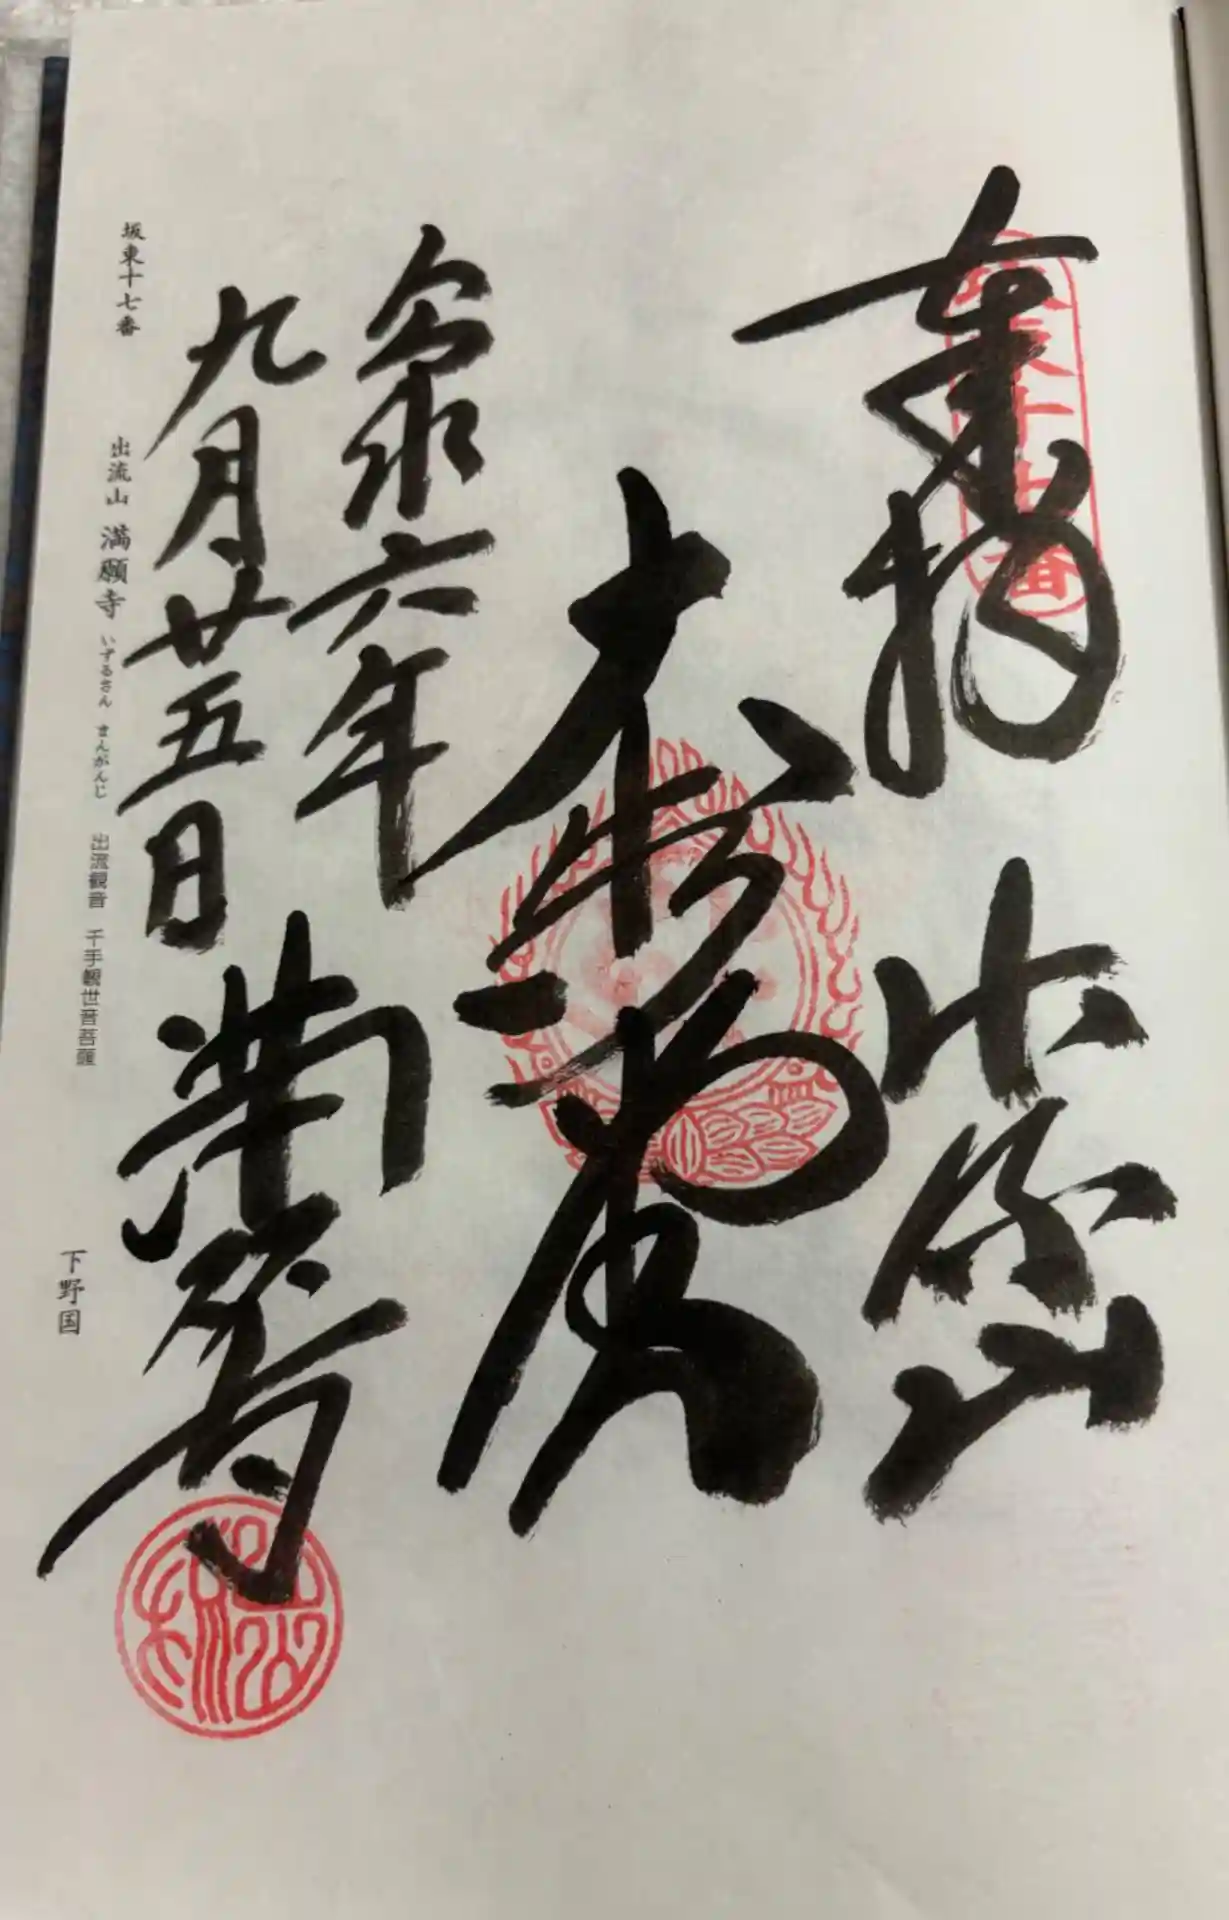 坂東十七番
奉拝 出流山
令和六年
九月廿五日 満願寺
坂東十七番 出流山 満願寺 いずるさん まんがんじ 出流観音 千手観世音菩薩 下野国